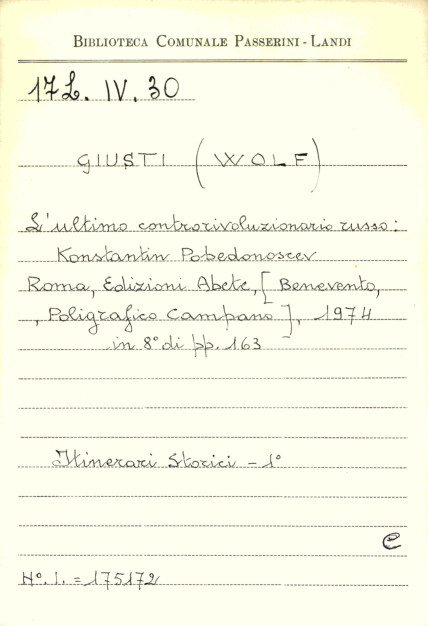 BIBLIOTECA COMUNALE PASSERINI - LANDI
17L. IV. 30
GIUSTI (WOLF)
L'ultimo controrivoluzionario russo:
Konstantin Pobedonoscev
Roma, Edizioni Abete, [Benevento,
, Poligrafico Campano], 1974
in 8° di pp. 163
Itinerari Storici - 1°
C
N°. I. = 175172